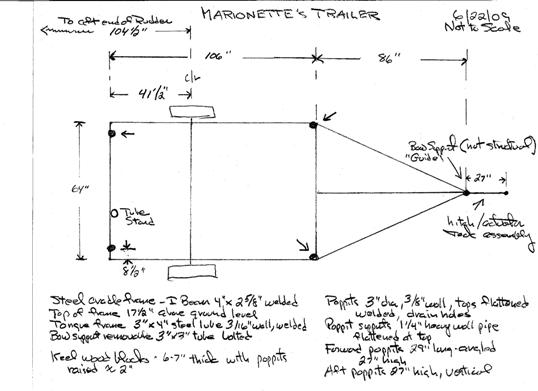 MARIONETTE'S TRAILER
6/22/09
Not to Scale
To aft end of Rudder
104 1/2"
106"
86"
C/L
41 1/2"
Bow Support (not structural)
"Guide"
27"
64"
Tube
Stand
hitch/actuator
Jack assembly
8 1/2"
Steel cradle frame - I Beam 4" x 2 5/8" welded
Top of frame 17 1/2" above ground level
Tongue frame 3" x 4" steel tube 3/16" wall, welded
Bow support removable 3" x 3" tube bolted
Keel wood blocks - 6-7" thick with poppits
raised ≈ 2"
Poppits 3" dia, 3/8" wall, tops flattened
welded, drain holes
Poppit supports 1 1/4" heavy wall pipe
flattened at top
Forward poppits 29" long-angled
27" high
Aft poppits 27" high, vertical